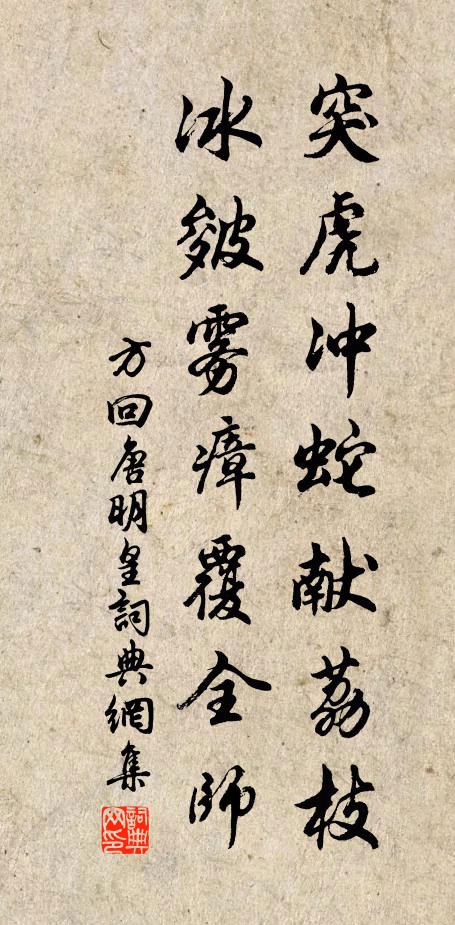 突虎冲蛇献荔枝
冰皴雾瘴覆全师
方回唐明皇詞典網集
詞典网印